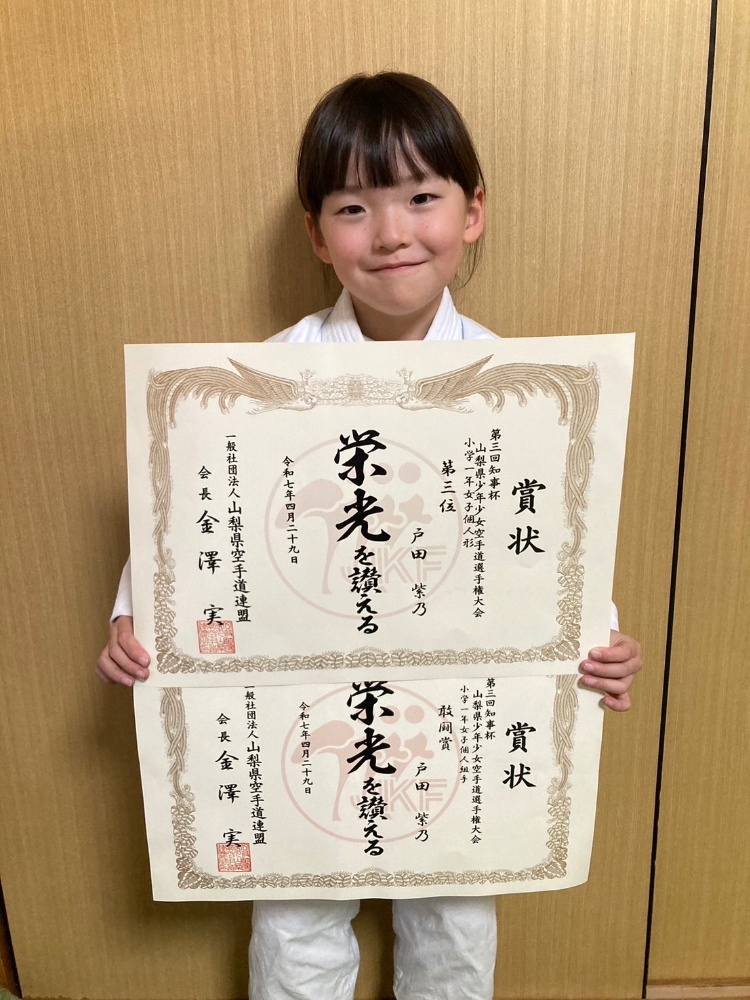 賞状
第三回知事杯
山梨県少年少女空手道選手権大会
小学一年女子個人形
第三位
戸田 紫乃
栄光を讃える
令和七年四月二十九日
一般社団法人山梨県空手道連盟
会長 金澤 実
JKF
賞状
第三回知事杯
山梨県少年少女空手道選手権大会
小学一年女子個人組手
敢闘賞
戸田 紫乃
栄光を讃える
令和七年四月二十九日
一般社団法人山梨県空手道連盟
会長 金澤 実
JKF